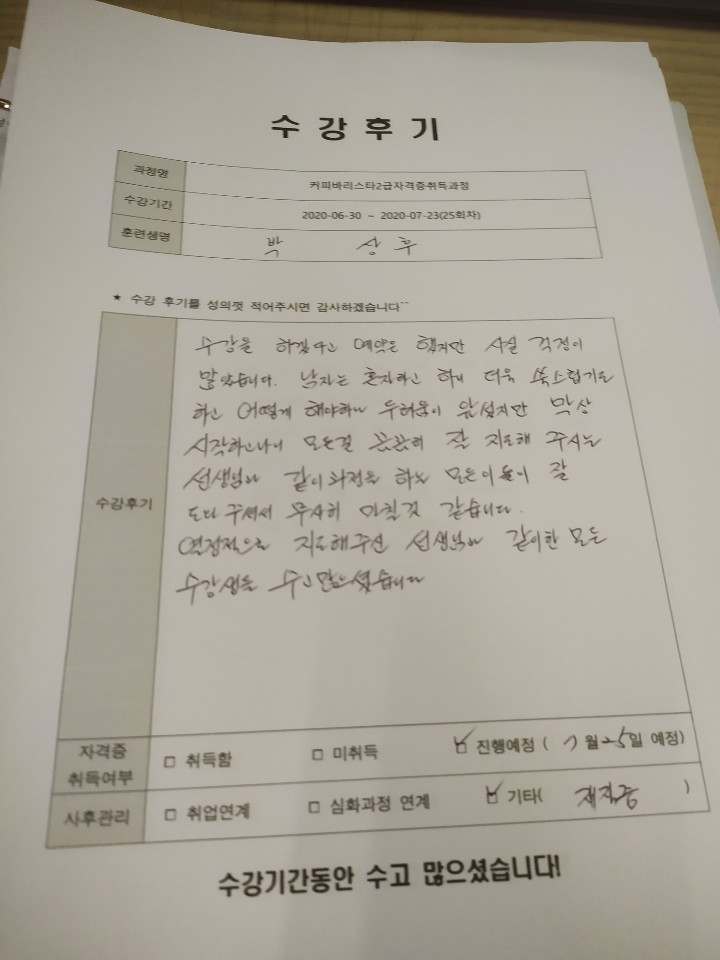 수 강 후 기
과정명 커피바리스타2급자격증취득과정
수강기간 2020-06-30 ~ 2020-07-23(25회차)
훈련생명 박 상 후
★ 수강 후기를 성의껏 적어주시면 감사하겠습니다^^
수강후기
수강을 하겠다고 예약은 했지만 사실 걱정이
많았습니다. 남자는 혼자라고 하니 더욱 쑥스럽기도
하고 어떻게 해야하나 두려움이 앞섰지만 막상
시작하고나니 모든걸 꼼꼼히 잘 지도해 주시는
선생님과 같이 과정을 하는 모든이들이 잘
도와 주셔서 무사히 마칠것 같습니다.
열정적으로 지도해주신 선생님과 같이한 모든
수강생들 수고많으셨습니다
자격증
취득여부 □ 취득함 □ 미취득 ☑ 진행예정 ( 7월 25일 예정)
사후관리 □ 취업연계 □ 심화과정 연계 ☑ 기타( 재직중 )
수강기간동안 수고 많으셨습니다!